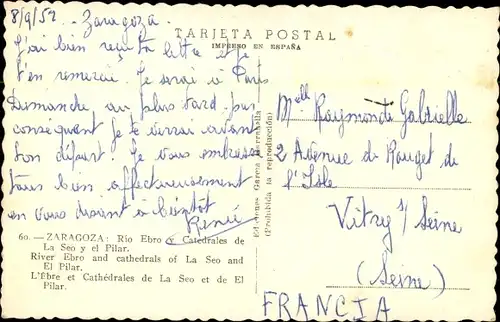 8/9/52 - Zaragoza.
TARJETA POSTAL
IMPRESO EN ESPAÑA
J'ai bien reçu ta lettre et je
t'en remercie. Je serai à Paris
Dimanche au plus tard par
conséquent je te verrai avant
ton départ. Je vous embrasse
tous bien affectueusement
en vous disant à bientôt
René
60. — ZARAGOZA: Río Ebro y Catedrales de
La Seo y el Pilar.
River Ebro and cathedrals of La Seo and
El Pilar.
L'Èbre et Cathédrales de La Seo et de El
Pilar.
Ediciones García Garrabella
(Prohibida la reproducción)
Melle Raymonde Gabrielle
2 Avenue du Rouget de
l'Isle
Vitry s/ Seine
(Seine)
FRANCIA